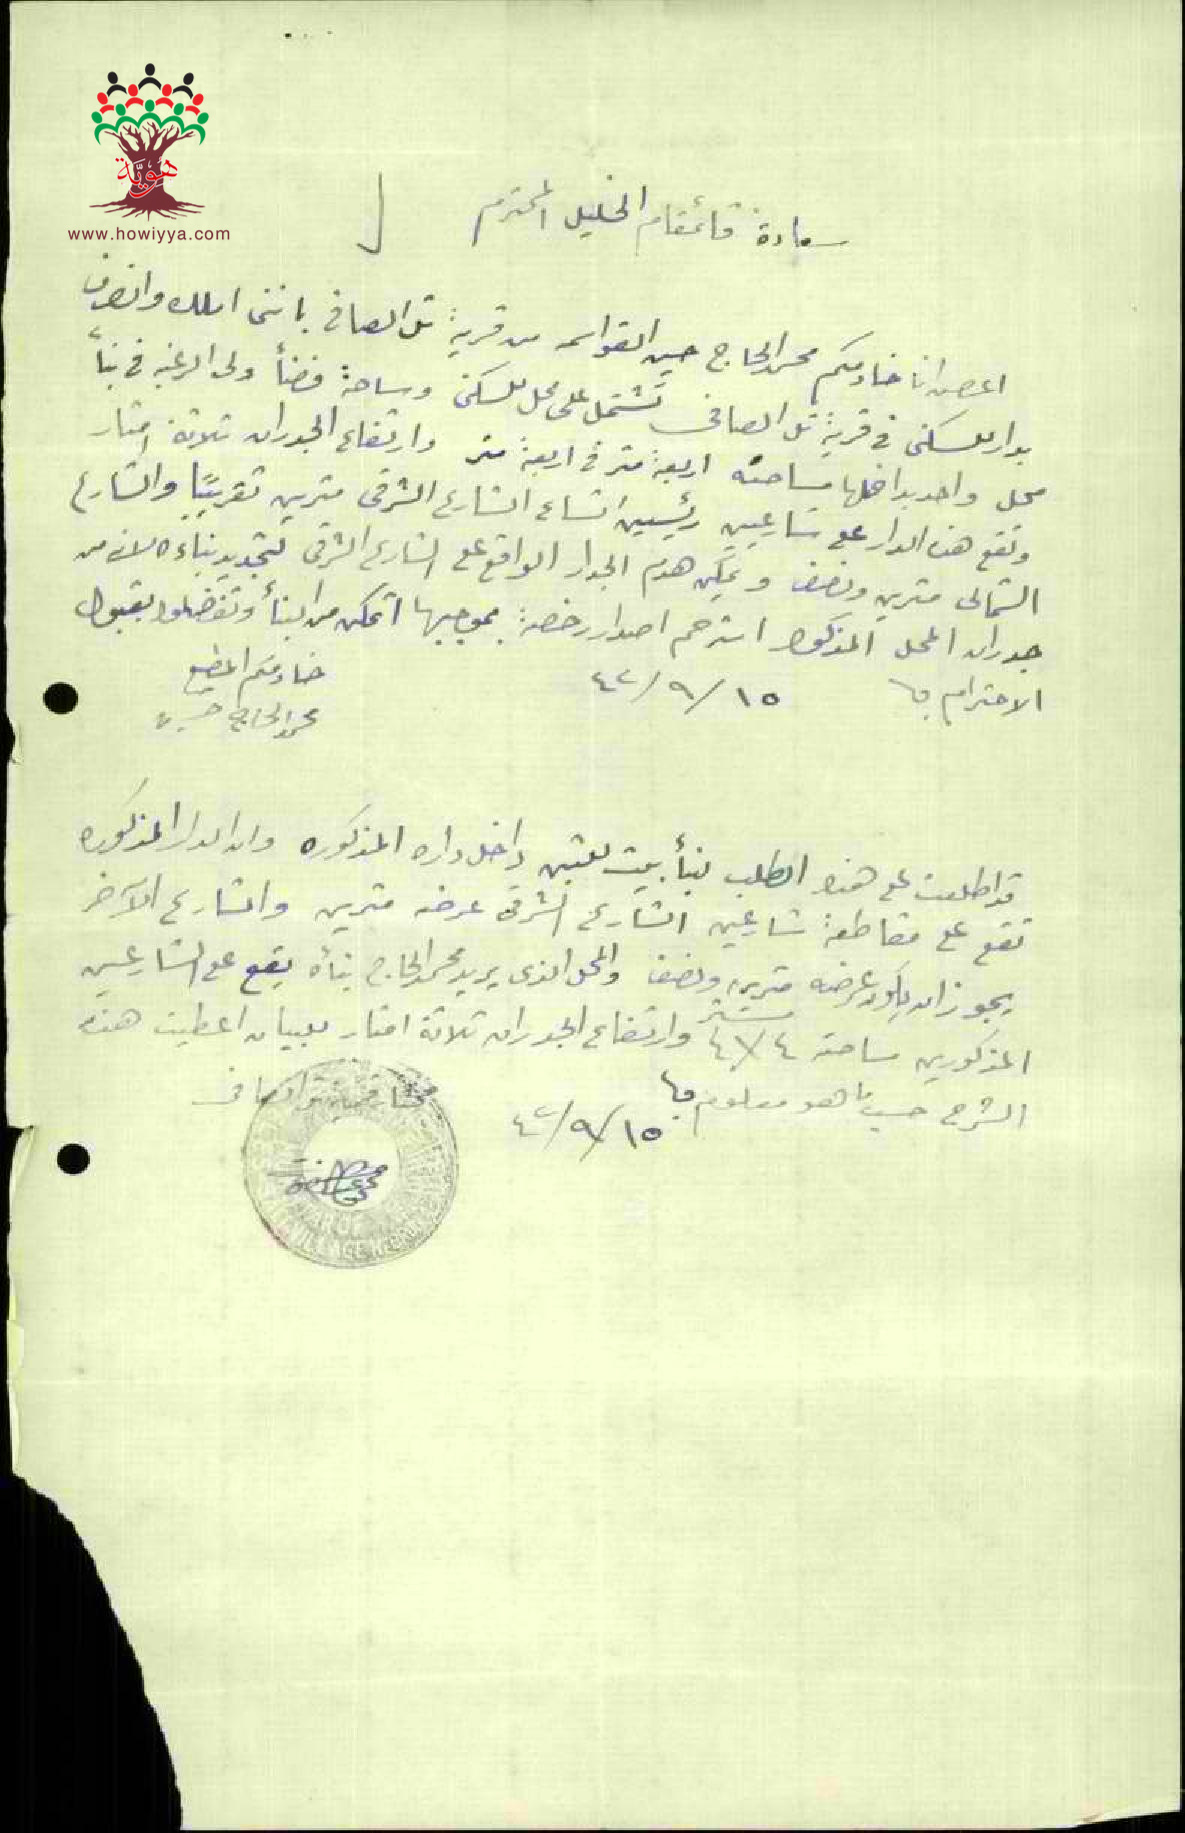 هَوِيَّة
www.howiyya.com
سعادة قائمقام الخليل المحترم
اعرض انا خادمكم محمد الحاج حسين القواسمه من قرية تل الصافي بانني املك واتصرف
بدار للسكنى في قرية تل الصافي تشتمل على محل للسكنى وساحة فضأ ولي الرغبه في بنأ
محل واحد بداخلها مساحته اربعة متر في اربعة متر وارتفاع الجدران ثلاثة امتار
وتقع هذه الدار على شارعين رئيسين اتساع الشارع الشرقي مترين تقريبًا والشارع
الشمالي مترين ونصف ويمكن هدم الجدار الواقع على الشارع الشرقي لتجديد بناءه لانه من
جدران المحل المذكور استرحم اصدار رخصة بموجبها اتمكن من البنأ وتفضلوا بقبول
الاحترام ١٥/٩/٤٢
خادمكم المطيع
محمد الحاج حسين
قد اطلعت على هذا الطلب لبنأ بيت للتبن داخل داره المذكوره وان الدار المذكوره
تقع على مقاطعة شارعين الشارع الشرقي عرضه مترين والشارع الآخر
يجوز ان يكون عرضه مترين ونصف والمحل الذي يريد محمد الحاج بنأه يقع على الشارعين
المذكورين مساحته ٤/٤ متر وارتفاع الجدران ثلاثة امتار للبيان اعطيت هذا
الشرح حسب ما هو معلوم ١٥/٩/٤٢
مختار قرية تل الصافي
VILLAGE